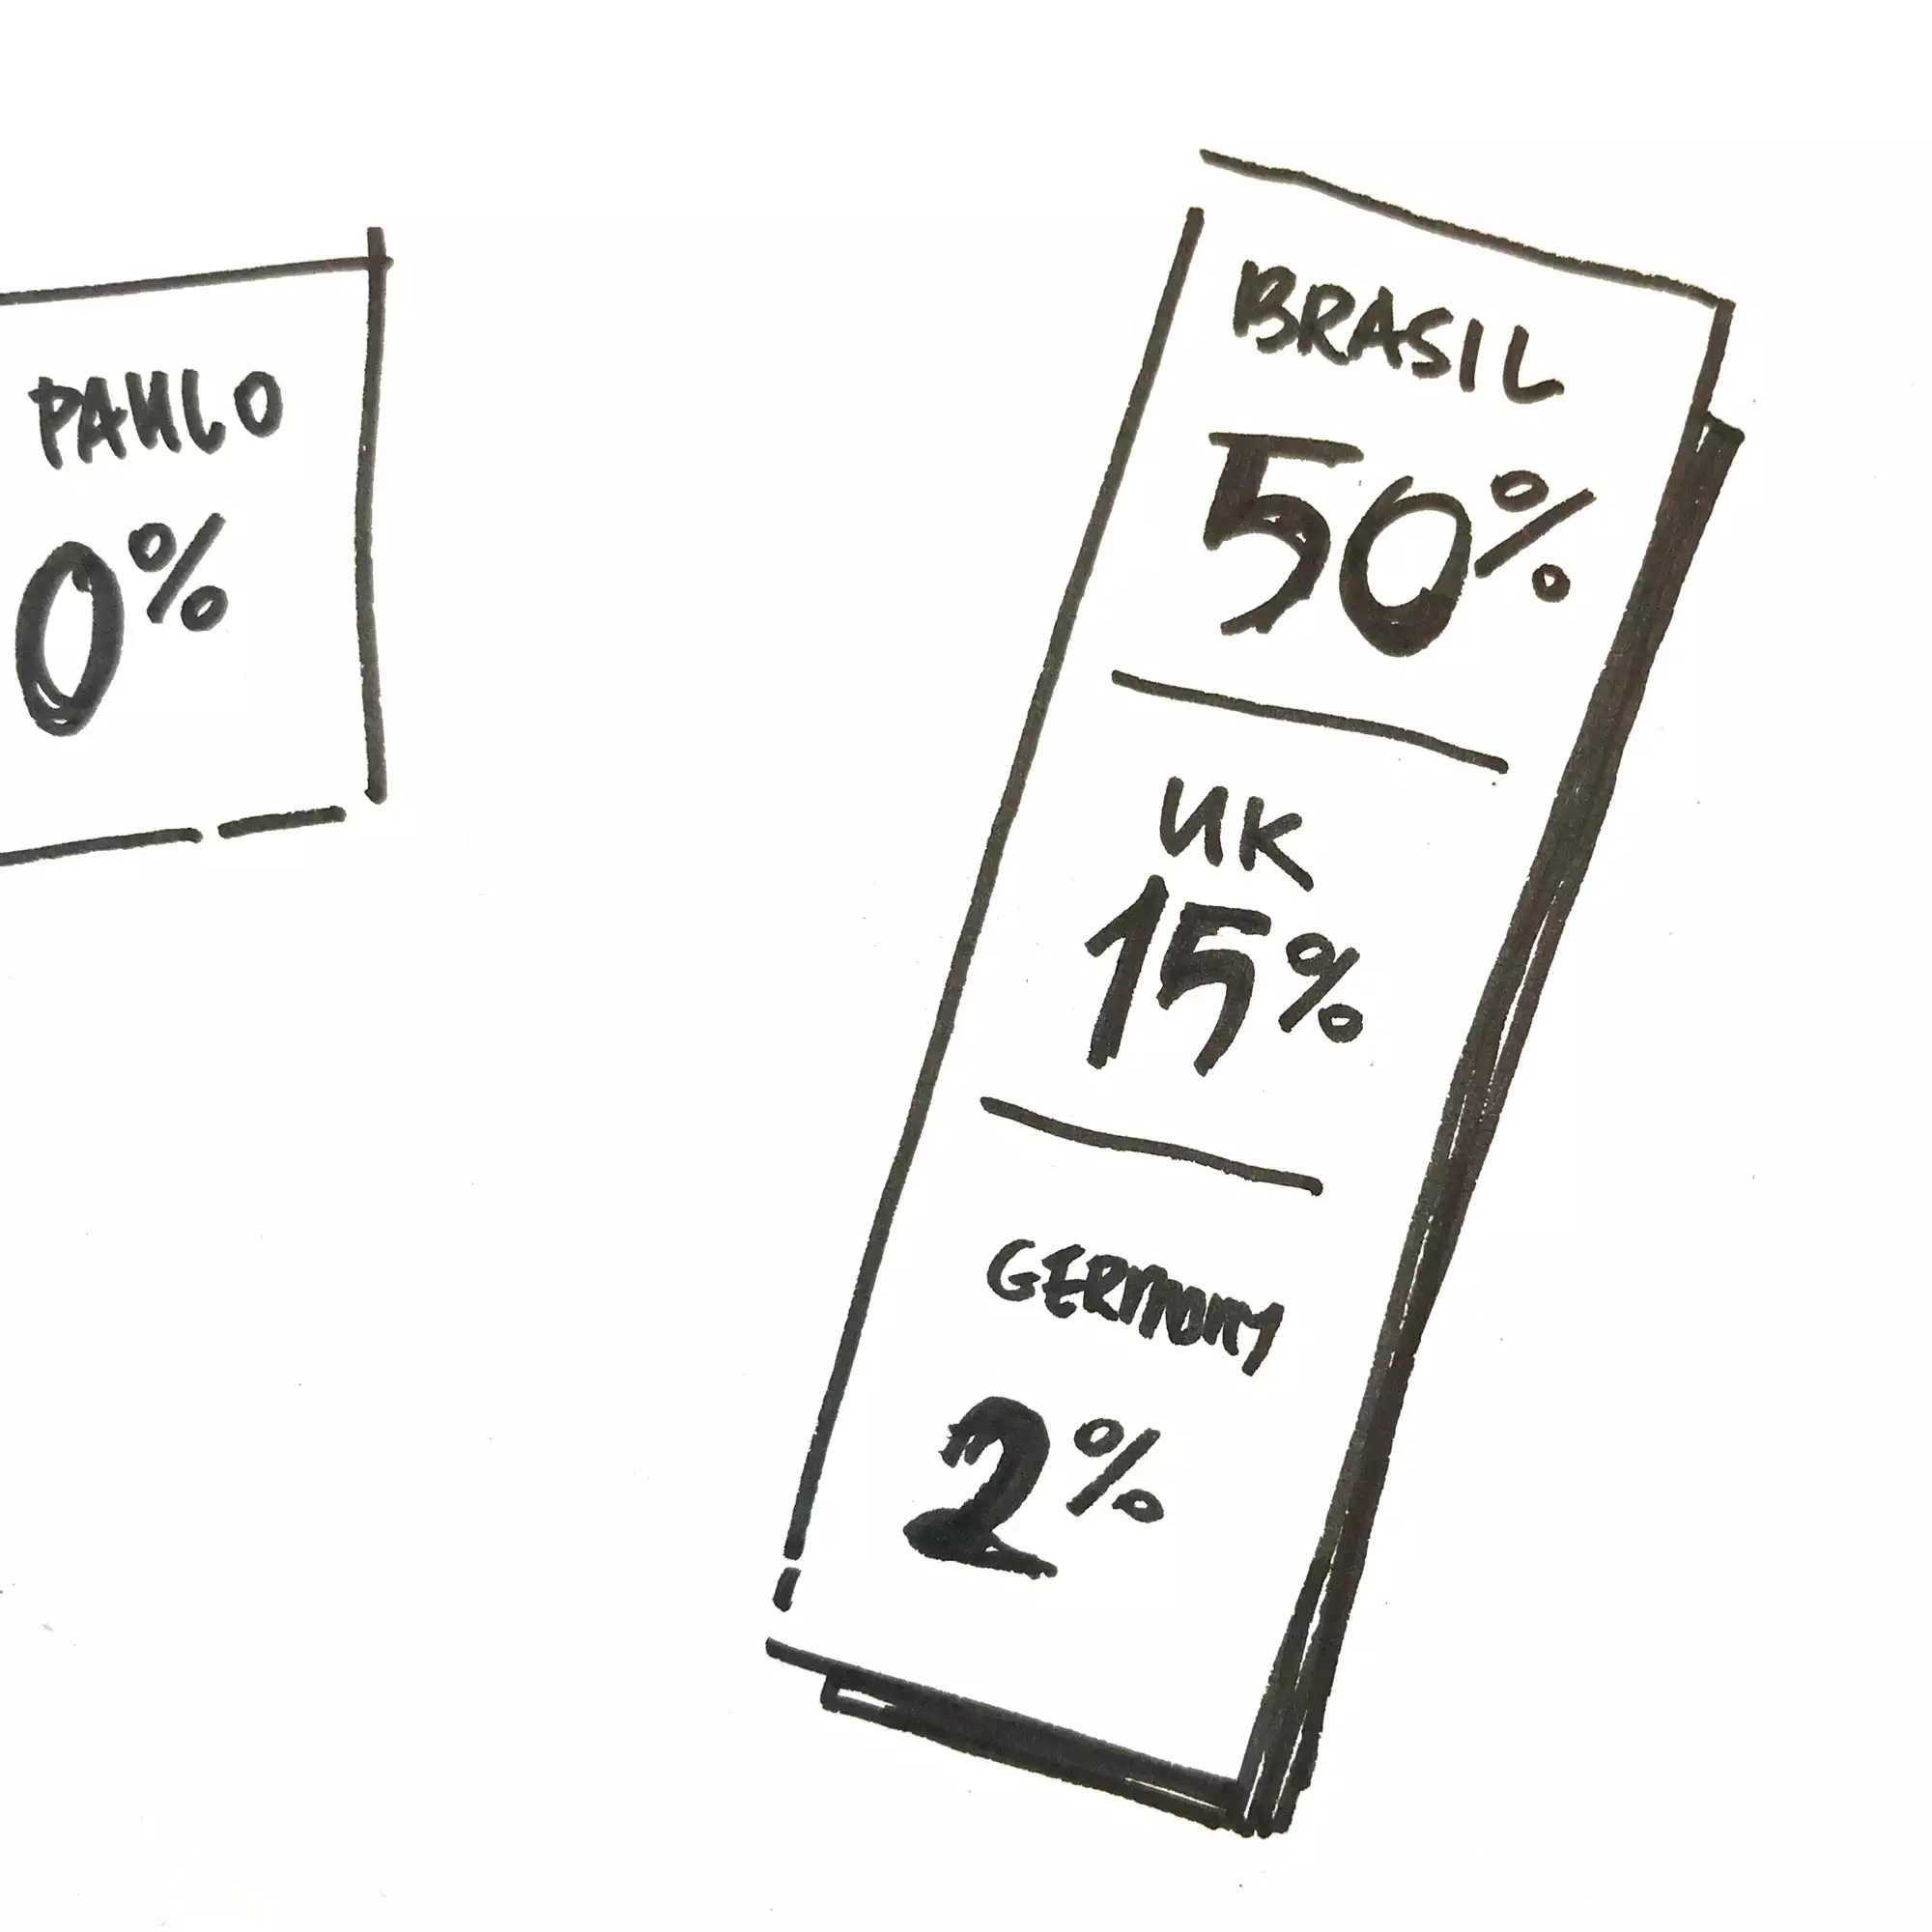 PAULO
0%
BRASIL
50%
UK
15%
GERMANY
2%